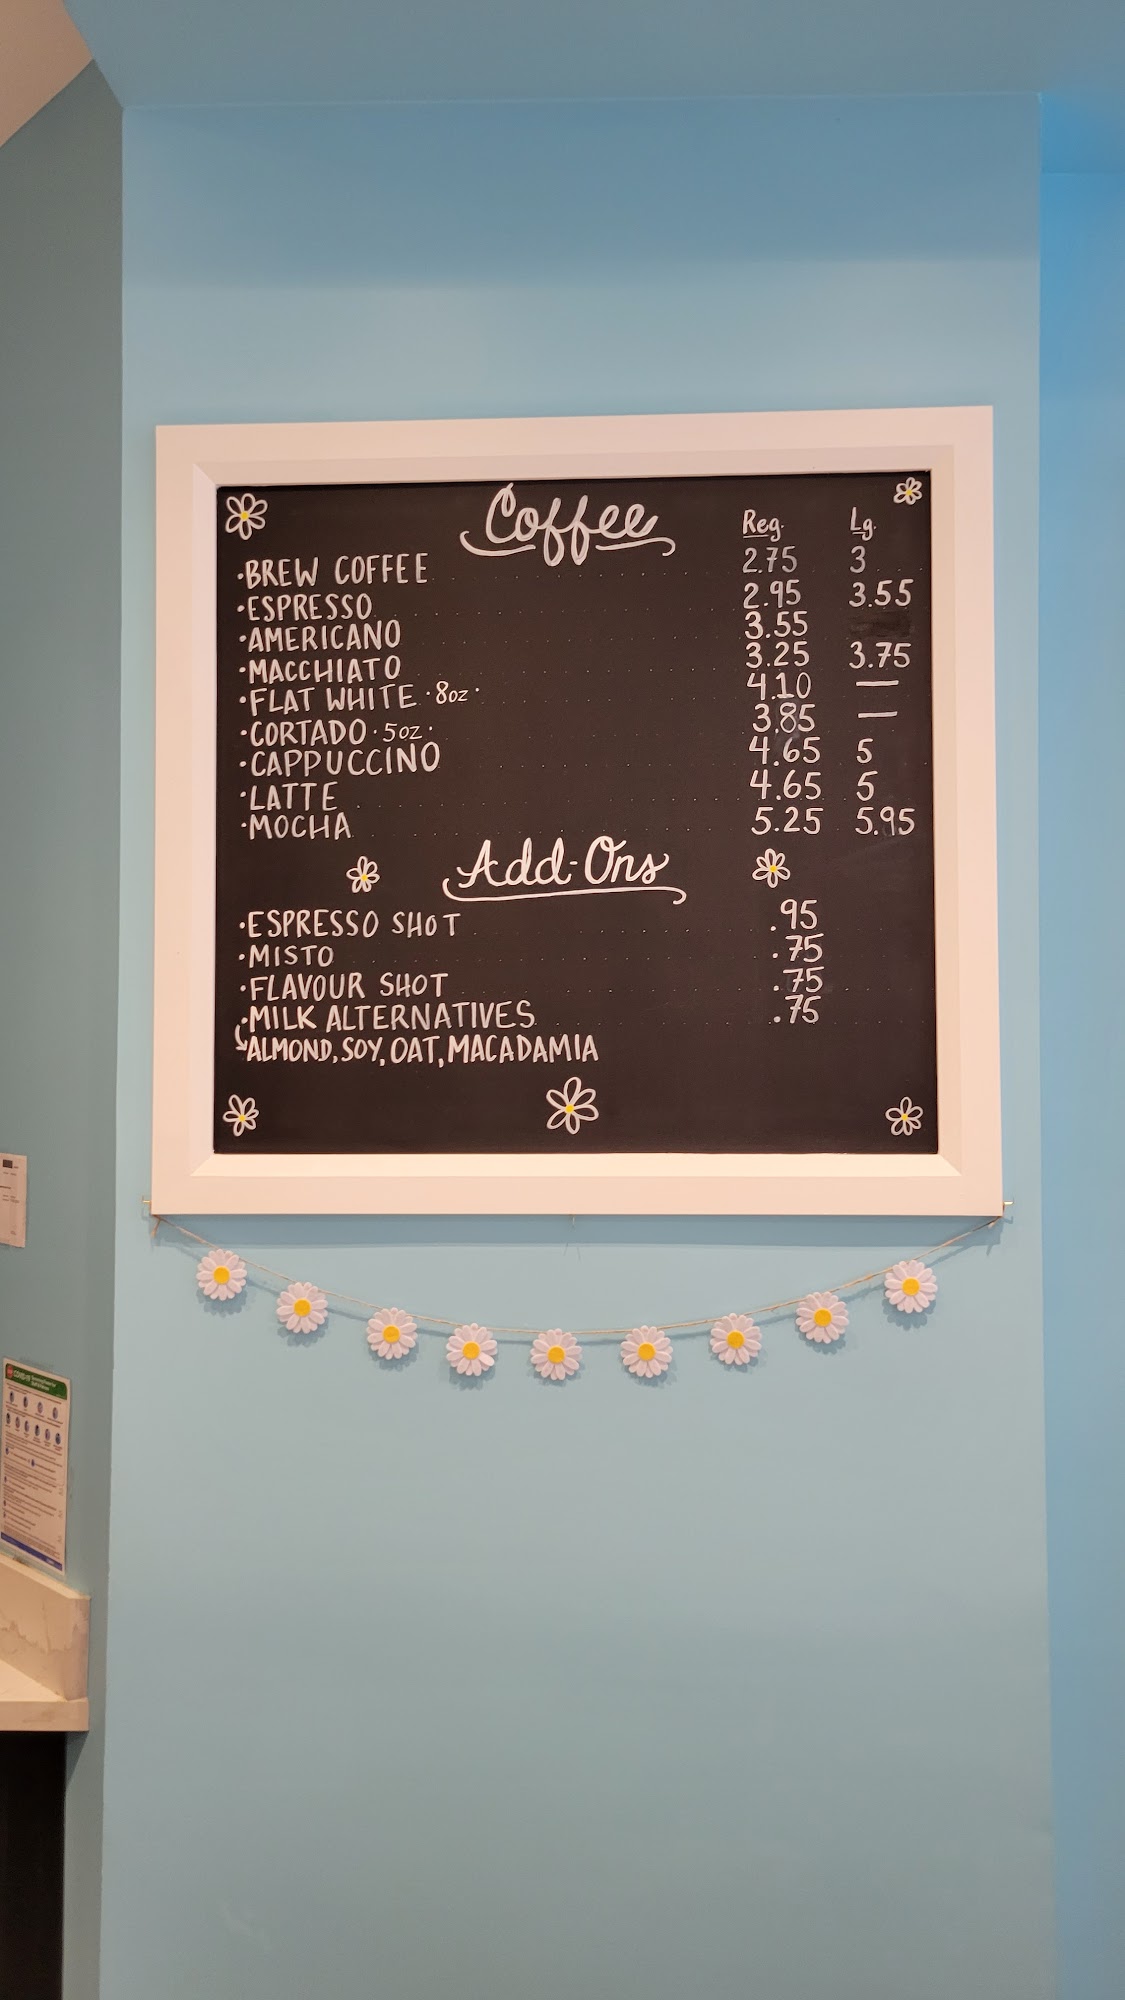 Coffee Reg. Lg.
·BREW COFFEE 2.75 3
·ESPRESSO 2.95 3.55
·AMERICANO 3.55
·MACCHIATO 3.25 3.75
·FLAT WHITE ·8oz· 4.10 —
·CORTADO ·5oz· 3.85 —
·CAPPUCCINO 4.65 5
·LATTE 4.65 5
·MOCHA 5.25 5.95
Add-Ons
·ESPRESSO SHOT .95
·MISTO .75
·FLAVOUR SHOT .75
·MILK ALTERNATIVES .75
ALMOND, SOY, OAT, MACADAMIA
COVID-19